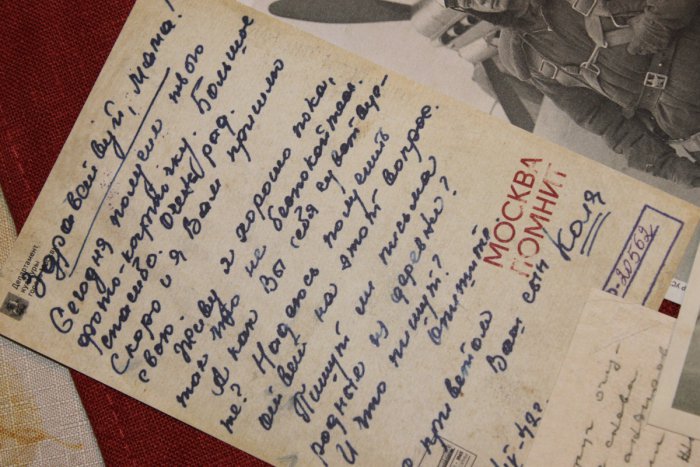 Здравствуй, Мама!
Сегодня получил твою
фото-карточку. Большое
спасибо. Очень рад.
Скоро и я Вам пришлю
свою
Живу я хорошо пока,
так что не беспокойтесь.
А как Вы себя чувствуе-
те? Надеюсь получить
ответ на этот вопрос.
Пишут ли письма
родные из деревни?
И что пишут? опишите.
приветом
Ваш сын Коля
42г
МОСКВА
ПОМНИТ
Департамент
культуры
20562